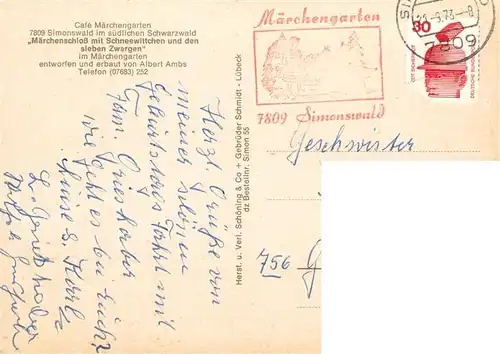 Café Märchengarten
7809 Simonswald im südlichen Schwarzwald
„Märchenschloß mit Schneewittchen und den
sieben Zwergen"
im Märchengarten
entworfen und erbaut von Albert Ambs
Telefon (07683) 252
Herzl. Grüße von
meiner schönen
Geburtstags Fahrt mit
Fam. Grieshaber
wie geht es bei euch?
Luise &. Karl
Herst. u. Verl. Schöning & Co + Gebrüder Schmidt - Lübeck
dz Bestellnr. Simon 55
Märchengarten
7809 Simonswald
7809
30
DEUTSCHE BUNDESPOST
Geschwister
756 G